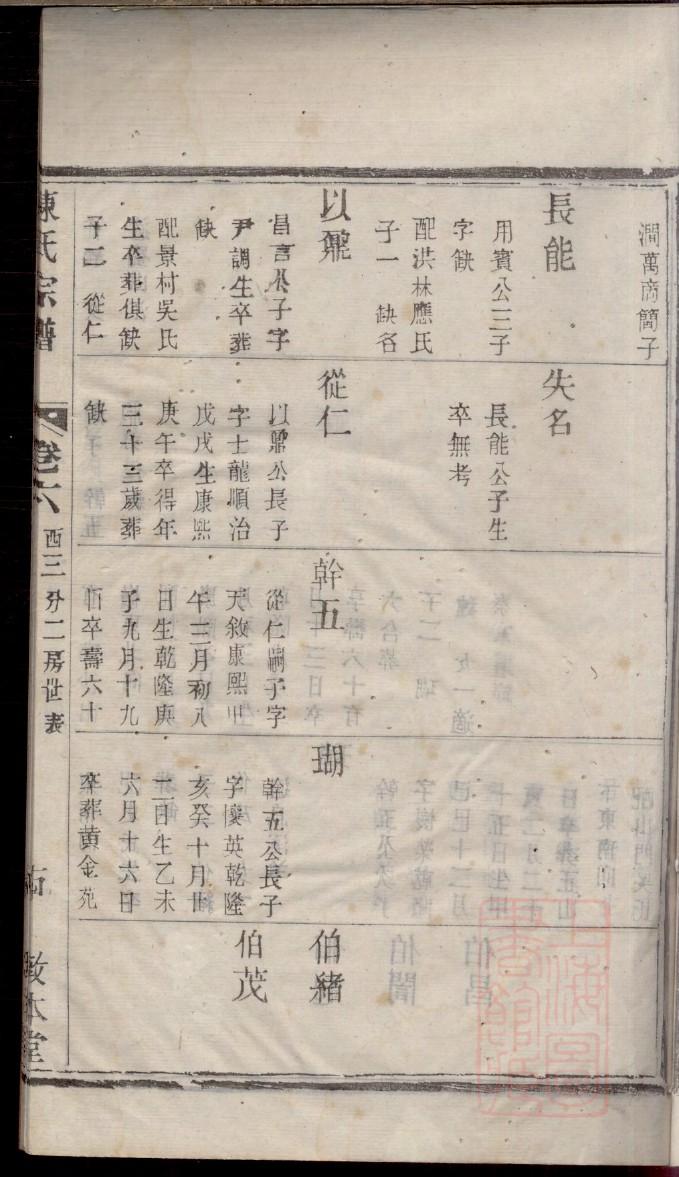 澗萬商簡子
長能
用賓公三子
字缺
配洪林應氏
子一 缺名
以鼐
昌言公子字
尹調生卒葬
缺
配景村吳氏
生卒葬俱缺
子二 從仁
失名
長能公子生
卒無考
從仁
以鼐公長子
字士龍順治
戊戌生康熙
庚午卒得年
三十三歲葬
缺
幹五
從仁嗣子字
天敘康熙甲
午三月初八
日生乾隆庚
子九月十九
酉卒壽六十
瑚
幹五公長子
字懷英乾隆
亥癸十月世
二日生乙未
六月十六日
卒葬黃金苑
伯緒
伯茂
陳氏宗譜
卷六
西三分二房世表
敦本堂